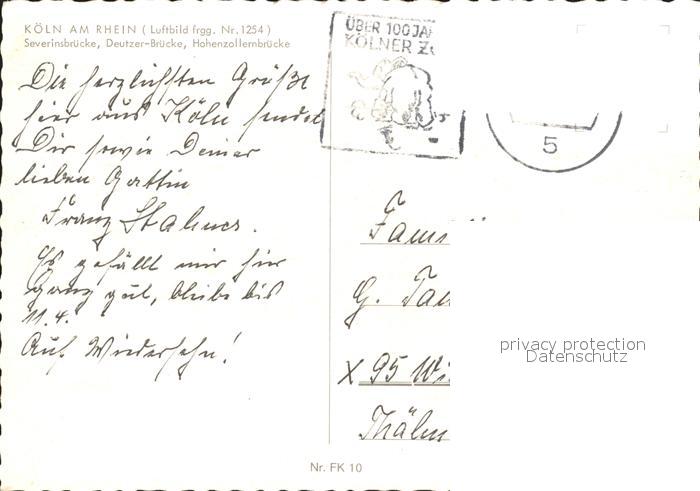 KÖLN AM RHEIN ( Luftbild frgg. Nr. 1254 )
Severinsbrücke, Deutzer-Brücke, Hohenzollernbrücke
ÜBER 100 JA
KÖLNER Z
5
Die herzlichsten Grüße
hier aus Köln sendet
Dir sowie Deiner
lieben Gattin
Franz
Es gefällt mir hier
ganz gut, bleibe bis
11.4.
Auf Wiedersehn!
Fam
G. Tau
X 95 Wi
Thälm
privacy protection
Datenschutz
Nr. FK 10